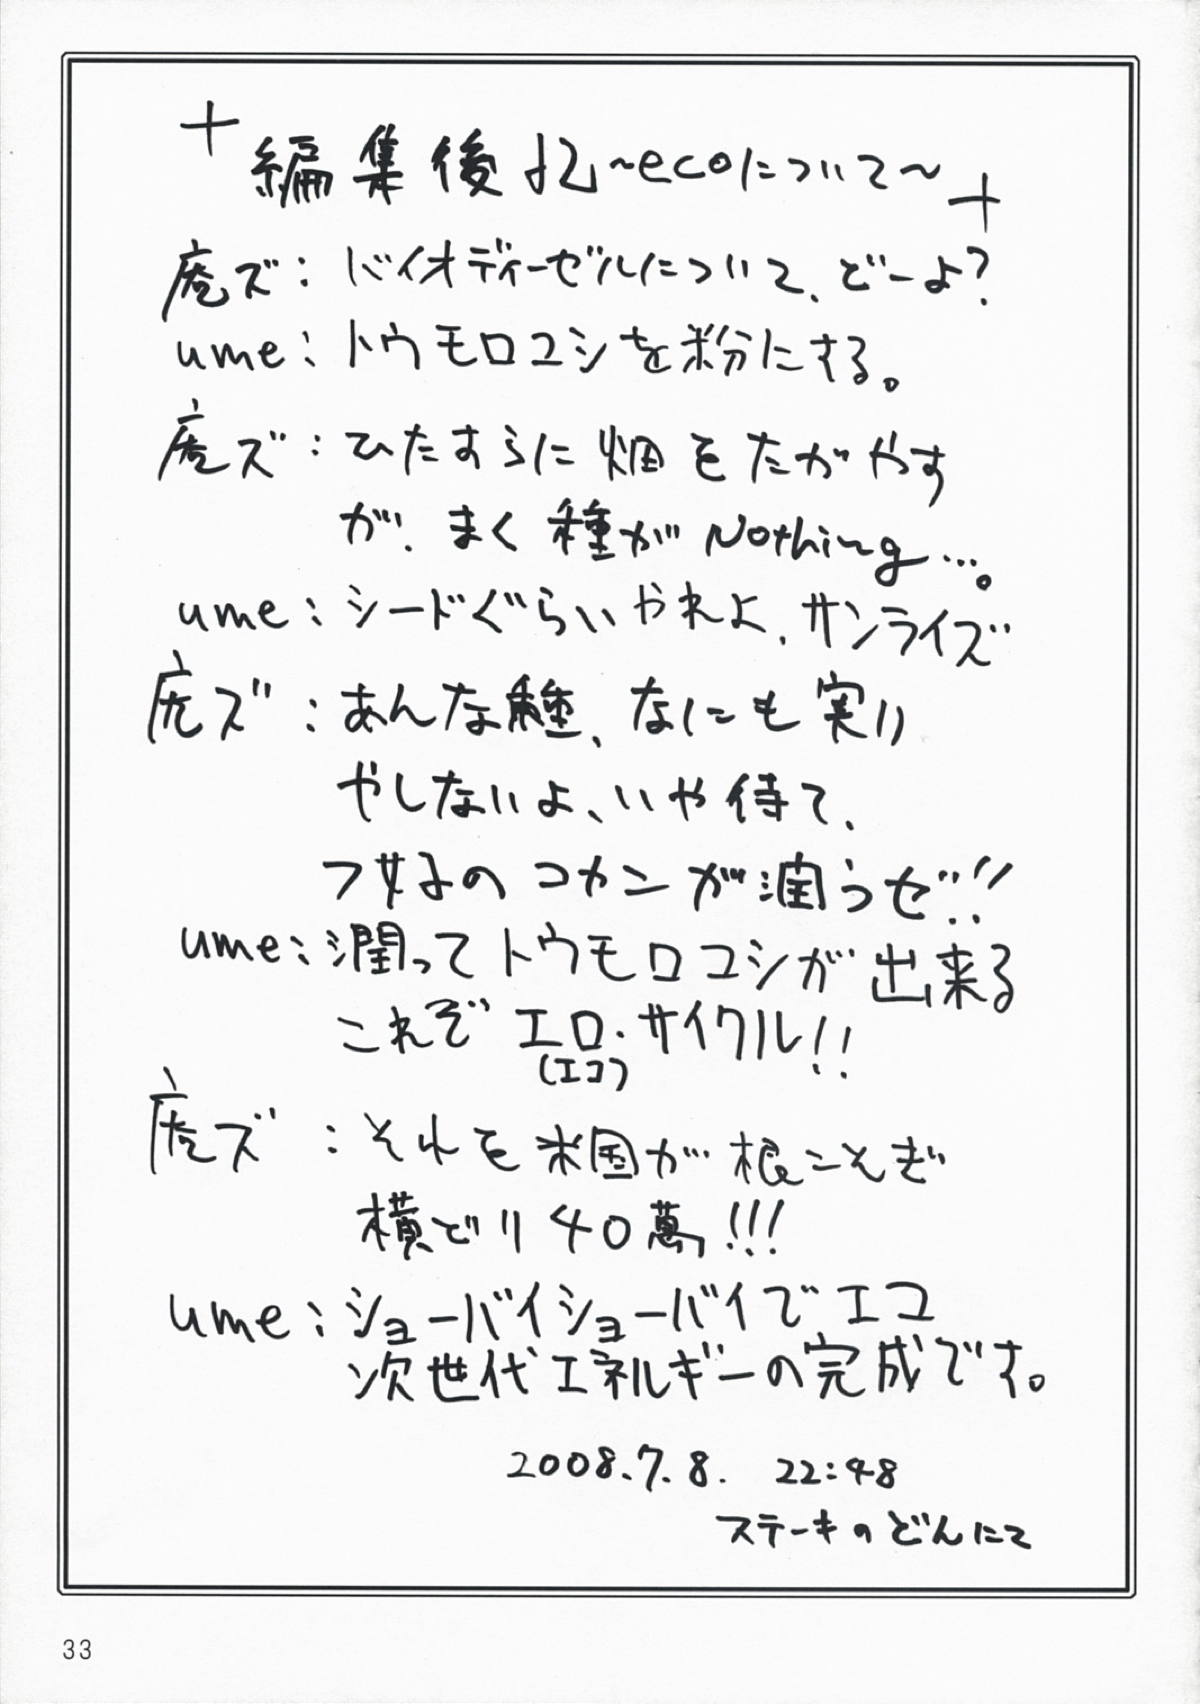 編集後記～ecoについて～
庵ズ：バイオディーゼルについて、どーよ？
ume：トウモロコシを粉にする。
庵ズ：ひたすらに畑をたがやす
が、まく種がNothing…。
ume：シードぐらいやれよ、サンライズ
庵ズ：あんな種、なにも実り
やしないよ、いや待て、
フ女子のコカンが潤うぜ!!
ume：潤ってトウモロコシが出来る
これぞエロ・サイクル!!
(エコ)
庵ズ：それを米国が根こそぎ
横どり40萬!!!
ume：ショーバイショーバイでエコ
次世代エネルギーの完成です。
2008.7.8. 22:48
ステーキのどんにて
33